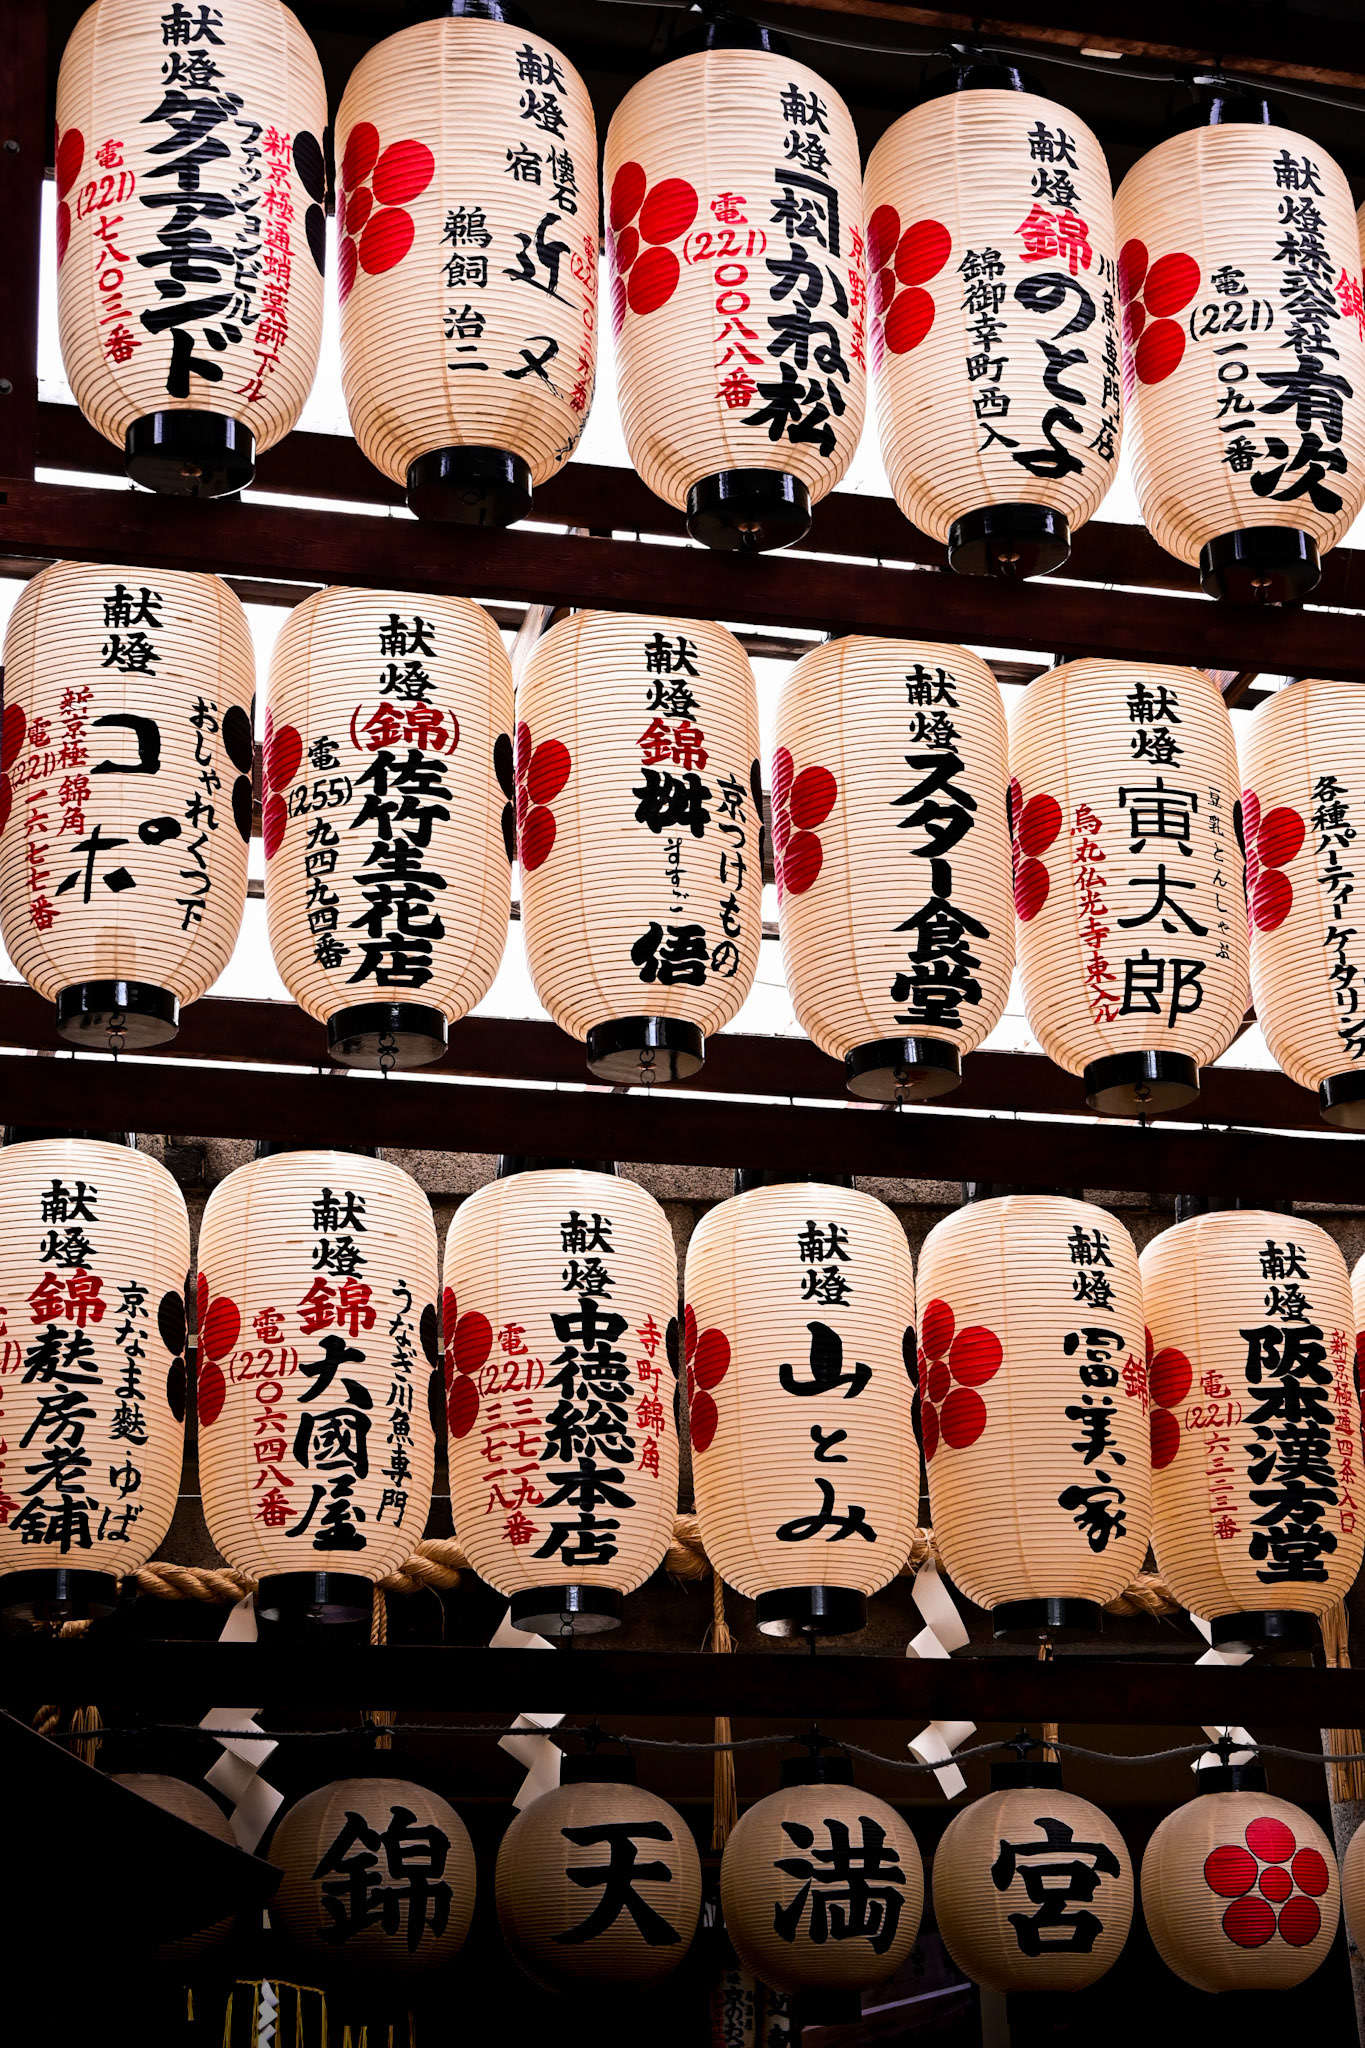 献燈
新京極通蛸薬師下ル
ファッションビル
ダイアモンド
電(221)七八〇三番
献燈
懐石
宿
近又
鵜飼治二
献燈
かね松
電(221)〇〇八八番
献燈
川魚専門店
錦のとよ
錦御幸町西入
献燈
錦
株式会社有次
電(221)一〇九一番
献燈
おしゃれくつ下
コポ
新京極錦角
電(221)一六七七番
献燈
(錦)佐竹生花店
電(255)九四九四番
献燈
京つけもの
錦桝悟
ますご
献燈
スター食堂
献燈
豆乳とんしゃぶ
寅太郎
烏丸仏光寺東入ル
各種パーティーケータリング
献燈
京なま麩・ゆば
錦麩房老舗
献燈
うなぎ川魚専門
錦大國屋
電(221)〇六四八番
献燈
寺町錦角
中徳総本店
電(221)三二七一九番
三七一八
献燈
山とみ
献燈
錦
冨美家
献燈
新京極通四条入口
阪本漢方堂
電(221)六三三三番
錦天満宮